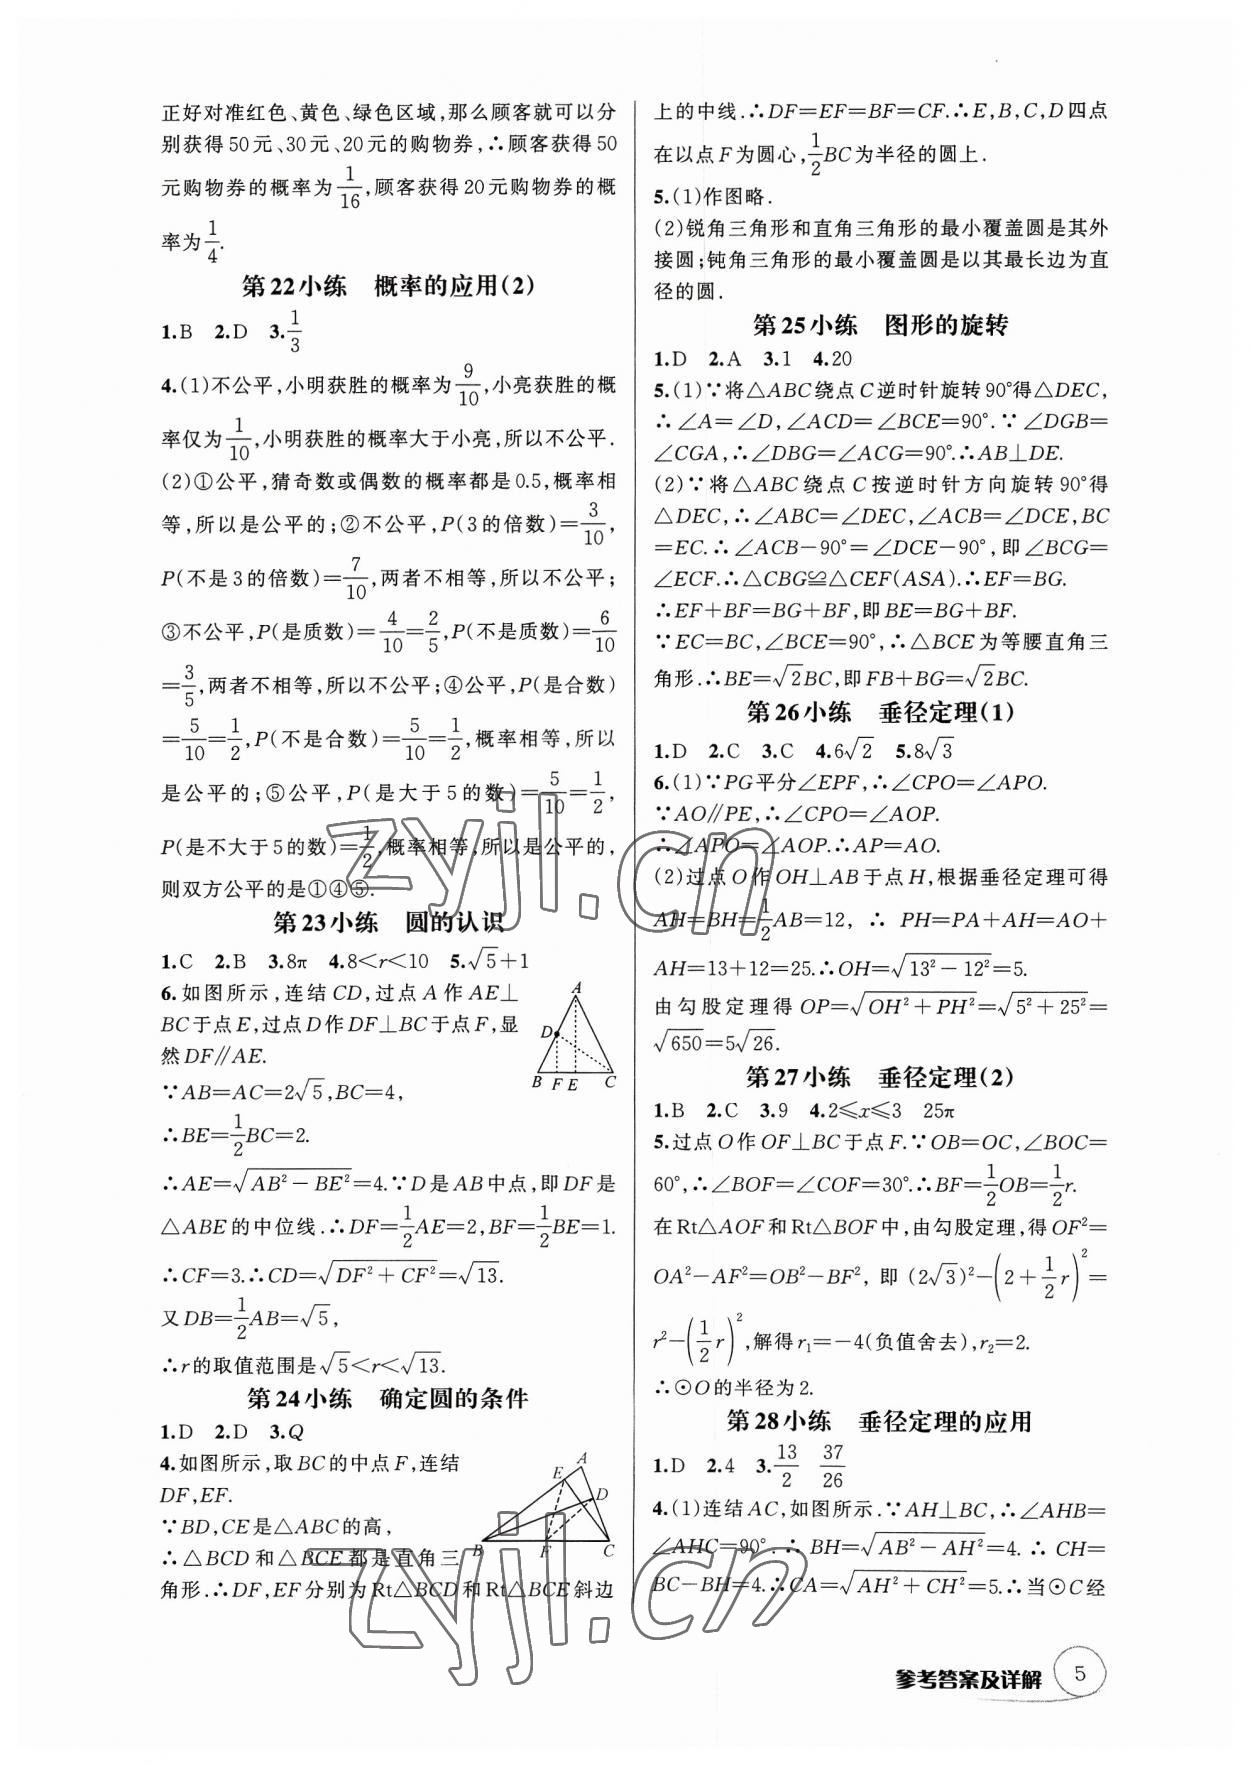 正好对准红色、黄色、绿色区域,那么顾客就可以分
别获得50元、30元、20元的购物券,∴顾客获得50
元购物券的概率为1/16,顾客获得20元购物券的概
率为1/4.
第22小练 概率的应用(2)
1.B 2.D 3.1/3
4.(1)不公平,小明获胜的概率为9/10,小亮获胜的概
率仅为1/10,小明获胜的概率大于小亮,所以不公平.
(2)①公平,猜奇数或偶数的概率都是0.5,概率相
等,所以是公平的;②不公平,P(3的倍数)=3/10,
P(不是3的倍数)=7/10,两者不相等,所以不公平;
③不公平,P(是质数)=4/10=2/5,P(不是质数)=6/10
=3/5,两者不相等,所以不公平;④公平,P(是合数)
=5/10=1/2,P(不是合数)=5/10=1/2,概率相等,所以
是公平的;⑤公平,P(是大于5的数)=5/10=1/2,
P(是不大于5的数)=1/2,概率相等,所以是公平的,
则双方公平的是①④⑤.
第23小练 圆的认识
1.C 2.B 3.8π 4.8<r<10 5.√5+1
6.如图所示,连结CD,过点A作AE⊥
BC于点E,过点D作DF⊥BC于点F,显
然DF∥AE.
∵AB=AC=2√5,BC=4,
∴BE=1/2BC=2.
A
D
B F E C
∴AE=√(AB²-BE²)=4.∵D是AB中点,即DF是
△ABE的中位线.∴DF=1/2AE=2,BF=1/2BE=1.
∴CF=3.∴CD=√(DF²+CF²)=√13.
又DB=1/2AB=√5,
∴r的取值范围是√5<r<√13.
第24小练 确定圆的条件
1.D 2.D 3.Q
4.如图所示,取BC的中点F,连结
DF,EF.
∵BD,CE是△ABC的高,
∴△BCD和△BCE都是直角三
角形.∴DF,EF分别为Rt△BCD和Rt△BCE斜边
A
E
D
B F C
上的中线.∴DF=EF=BF=CF.∴E,B,C,D四点
在以点F为圆心,1/2BC为半径的圆上.
5.(1)作图略.
(2)锐角三角形和直角三角形的最小覆盖圆是其外
接圆;钝角三角形的最小覆盖圆是以其最长边为直
径的圆.
第25小练 图形的旋转
1.D 2.A 3.1 4.20
5.(1)∵将△ABC绕点C逆时针旋转90°得△DEC,
∴∠A=∠D,∠ACD=∠BCE=90°.∵∠DGB=
∠CGA,∴∠DBG=∠ACG=90°.∴AB⊥DE.
(2)∵将△ABC绕点C按逆时针方向旋转90°得
△DEC,∴∠ABC=∠DEC,∠ACB=∠DCE,BC
=EC.∴∠ACB-90°=∠DCE-90°,即∠BCG=
∠ECF.∴△CBG≌△CEF(ASA).∴EF=BG.
∴EF+BF=BG+BF,即BE=BG+BF.
∵EC=BC,∠BCE=90°,∴△BCE为等腰直角三
角形.∴BE=√2BC,即FB+BG=√2BC.
第26小练 垂径定理(1)
1.D 2.C 3.C 4.6√2 5.8√3
6.(1)∵PG平分∠EPF,∴∠CPO=∠APO.
∵AO∥PE,∴∠CPO=∠AOP.
∴∠APO=∠AOP.∴AP=AO.
(2)过点O作OH⊥AB于点H,根据垂径定理可得
AH=BH=1/2AB=12,∴PH=PA+AH=AO+
AH=13+12=25.∴OH=√(13²-12²)=5.
由勾股定理得OP=√(OH²+PH²)=√(5²+25²)=
√650=5√26.
第27小练 垂径定理(2)
1.B 2.C 3.9 4.2≤x≤3 25π
5.过点O作OF⊥BC于点F.∵OB=OC,∠BOC=
60°,∴∠BOF=∠COF=30°.∴BF=1/2OB=1/2r.
在Rt△AOF和Rt△BOF中,由勾股定理,得OF²=
OA²-AF²=OB²-BF²,即(2√3)²-(2+1/2r)²=
r²-(1/2r)²,解得r₁=-4(负值舍去),r₂=2.
∴⊙O的半径为2.
第28小练 垂径定理的应用
1.D 2.4 3.13/2 37/26
4.(1)连结AC,如图所示.∵AH⊥BC,∴∠AHB=
∠AHC=90°.∴BH=√(AB²-AH²)=4.∴CH=
BC-BH=4.∴CA=√(AH²+CH²)=5.∴当⊙C经
参考答案及详解 5
zyjl.cn
zyjl.cn